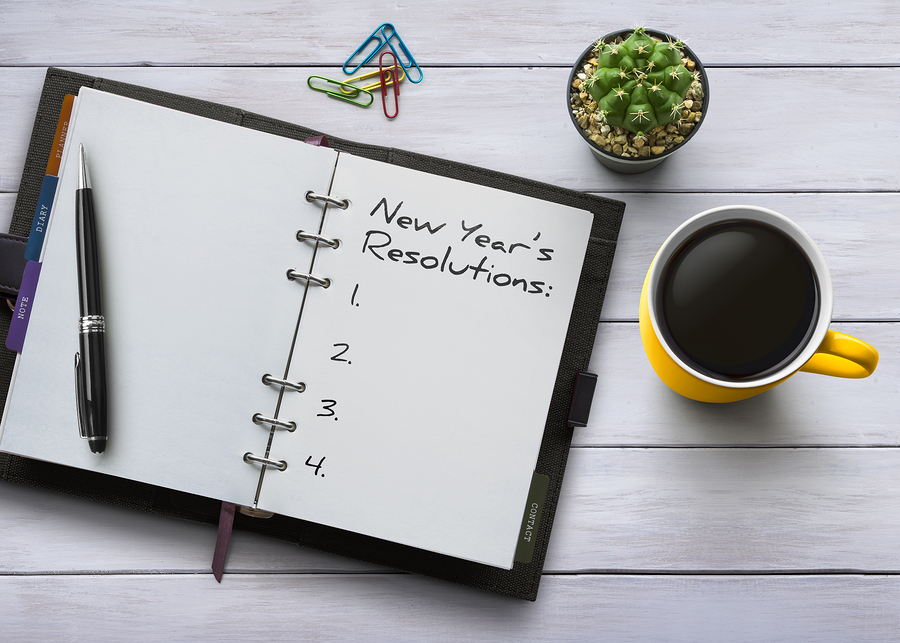 PLANNER
DIARY
NOTE
New Year's
Resolutions:
1.
2.
3.
4.
CONTACT